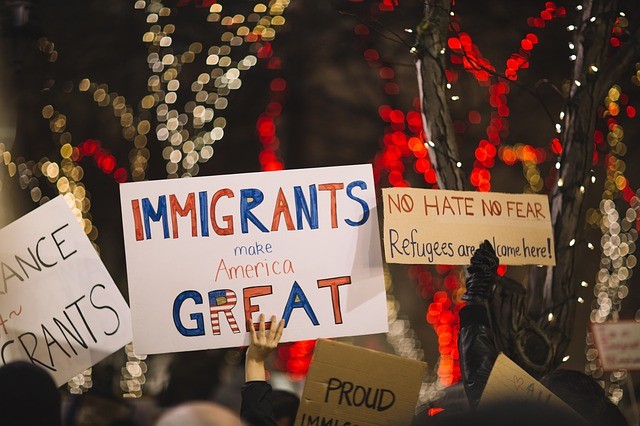 IMMIGRANTS
make
America
GREAT
NO HATE NO FEAR
Refugees are here!
ANCE
GRANTS
PROUD